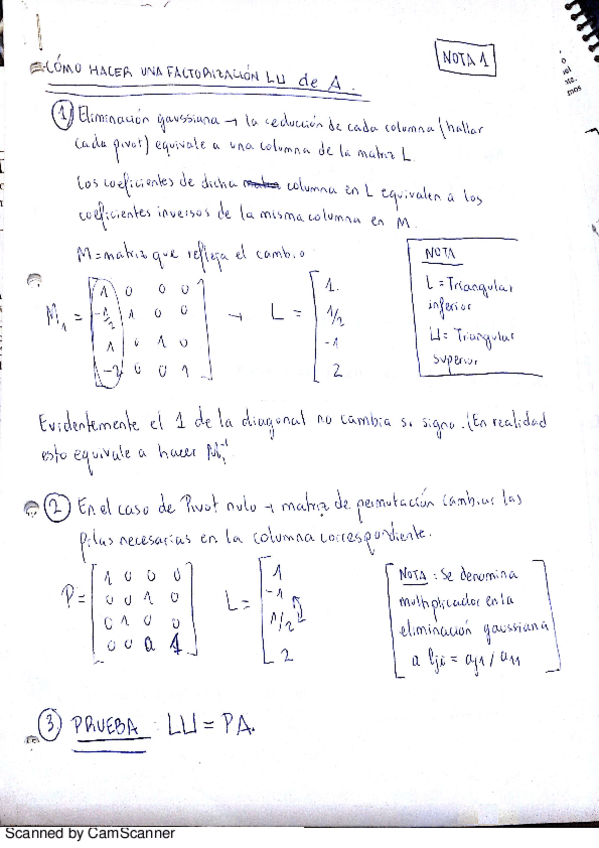 NOTA 1
CÓMO HACER UNA FACTORIZACIÓN LU de A.
① Eliminación gaussiana → la reducción de cada columna (hallar
cada pivot) equivale a una columna de la matriz L
Los coeficientes de dicha columna en L equivalen a los
coeficientes inversos de la misma columna en M.
M = matriz que refleja el cambio
M₁ = [ 1 0 0 0 → L = [ 1.
-1/2 1 0 0 1/2
1 0 1 0 -1
-2 0 0 1 ] 2
NOTA
L = Triangular
inferior
U = Triangular
superior
Evidentemente el 1 de la diagonal no cambia su signo. (En realidad
esto equivale a hacer M₁⁻¹
② En el caso de Pivot nulo → matriz de permutación cambiar las
filas necesarias en la columna correspondiente.
P = [ 1 0 0 0 L = [ 1
0 0 1 0 -1
0 1 0 0 1/2
0 0 0 1 ] 2
NOTA: Se denomina
multiplicador en la
eliminación gaussiana
a lji = aj1 / a11
③ PRUEBA: LU = PA.
Scanned by CamScanner